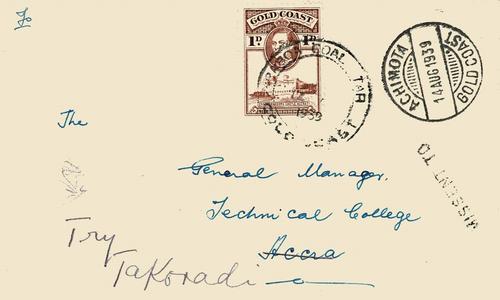 To
GOLD COAST
1D 1D
GOLD COAST
1939
ACHIMOTA
14 AUG 1939
GOLD COAST
MISSENT TO
The
General Manager,
Technical College
Accra
Try
Takoradi